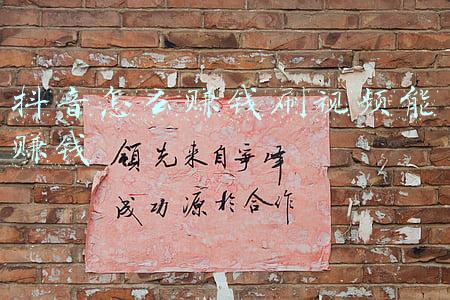 抖音怎么赚钱刷视频能
赚钱
领先来自争峰
成功源於合作